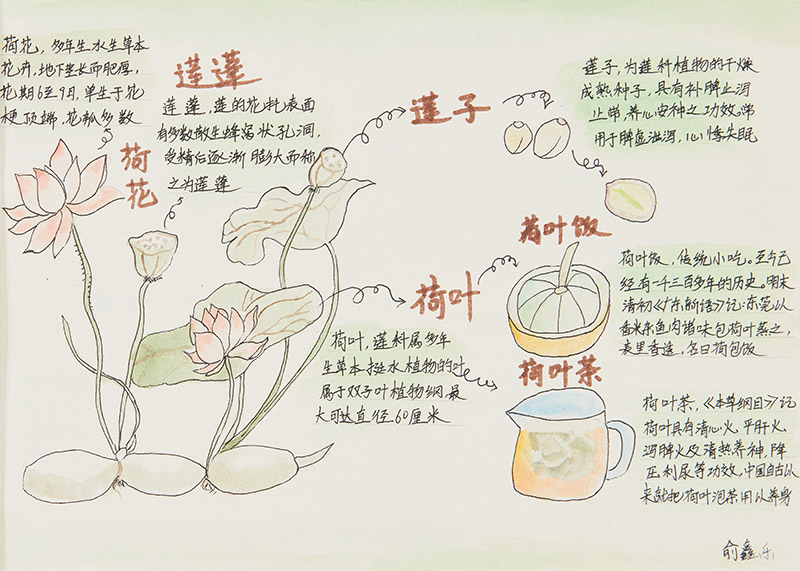 荷花，多年生水生草本
花卉，地下茎长而肥厚，
花期6至9月，单生于花
梗顶端，花瓣多数
荷花
莲蓬
莲蓬，莲的花托表面
有多数散生蜂窝状孔洞，
受精后逐渐膨大而称
之为莲蓬
莲子
莲子，为莲科植物的干燥
成熟种子，具有补脾止泻
止带，养心安神之功效。常
用于脾虚泄泻，心悸失眠
荷叶
荷叶，莲科属多年
生草本挺水植物的叶
属于双子叶植物纲，最
大可达直径60厘米
荷叶饭
荷叶饭，传统小吃。至今已
经有一千三百多年的历史。明末
清初《广东新语》记：东莞以
香米杂鱼肉诸味包荷叶蒸之，
表里香透，名曰荷包饭
荷叶茶
荷叶茶，《本草纲目》记
荷叶具有清心火，平肝火，
泻脾火及清热养神，降
压利尿等功效，中国自古以
来就把荷叶泡茶用以养身
俞鑫乐